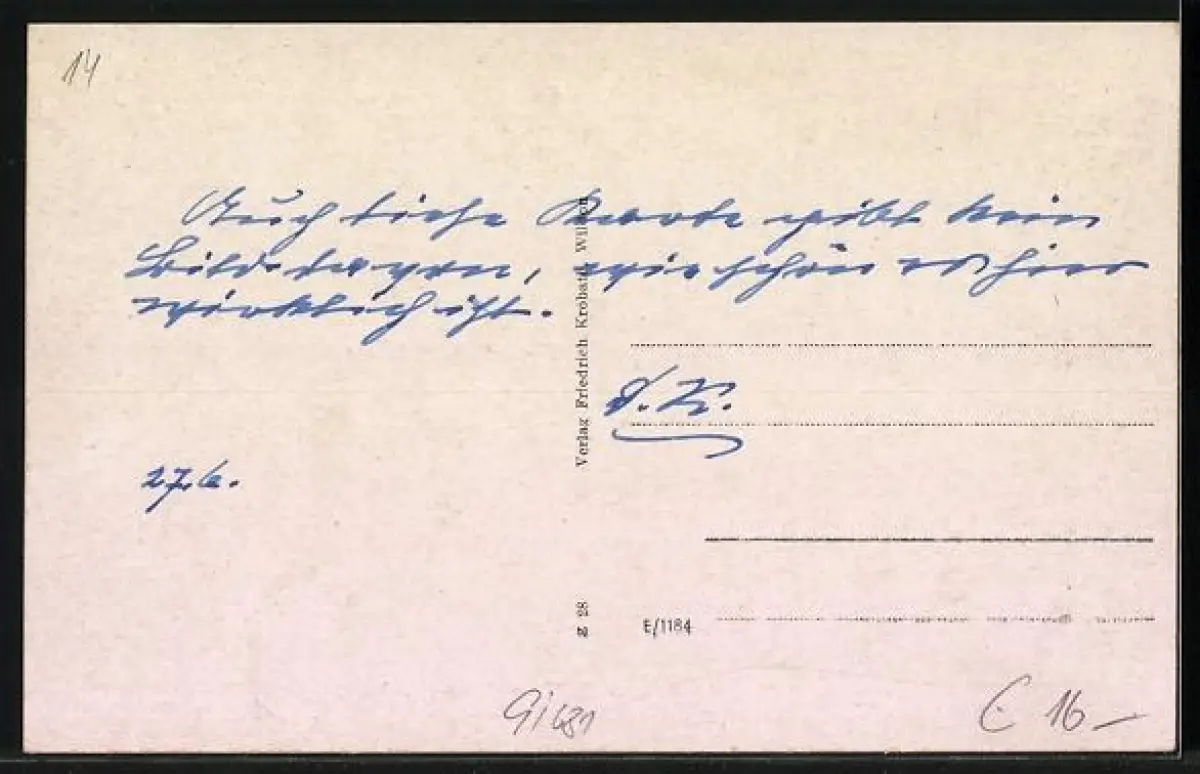 14
Auch diese Karte gibt kein
Bild davon, wie schön es hier
wirklich ist.
D. K.
27.6.
Verlag Friedrich Krobath, Wildon
28
E/1184
€ 16-